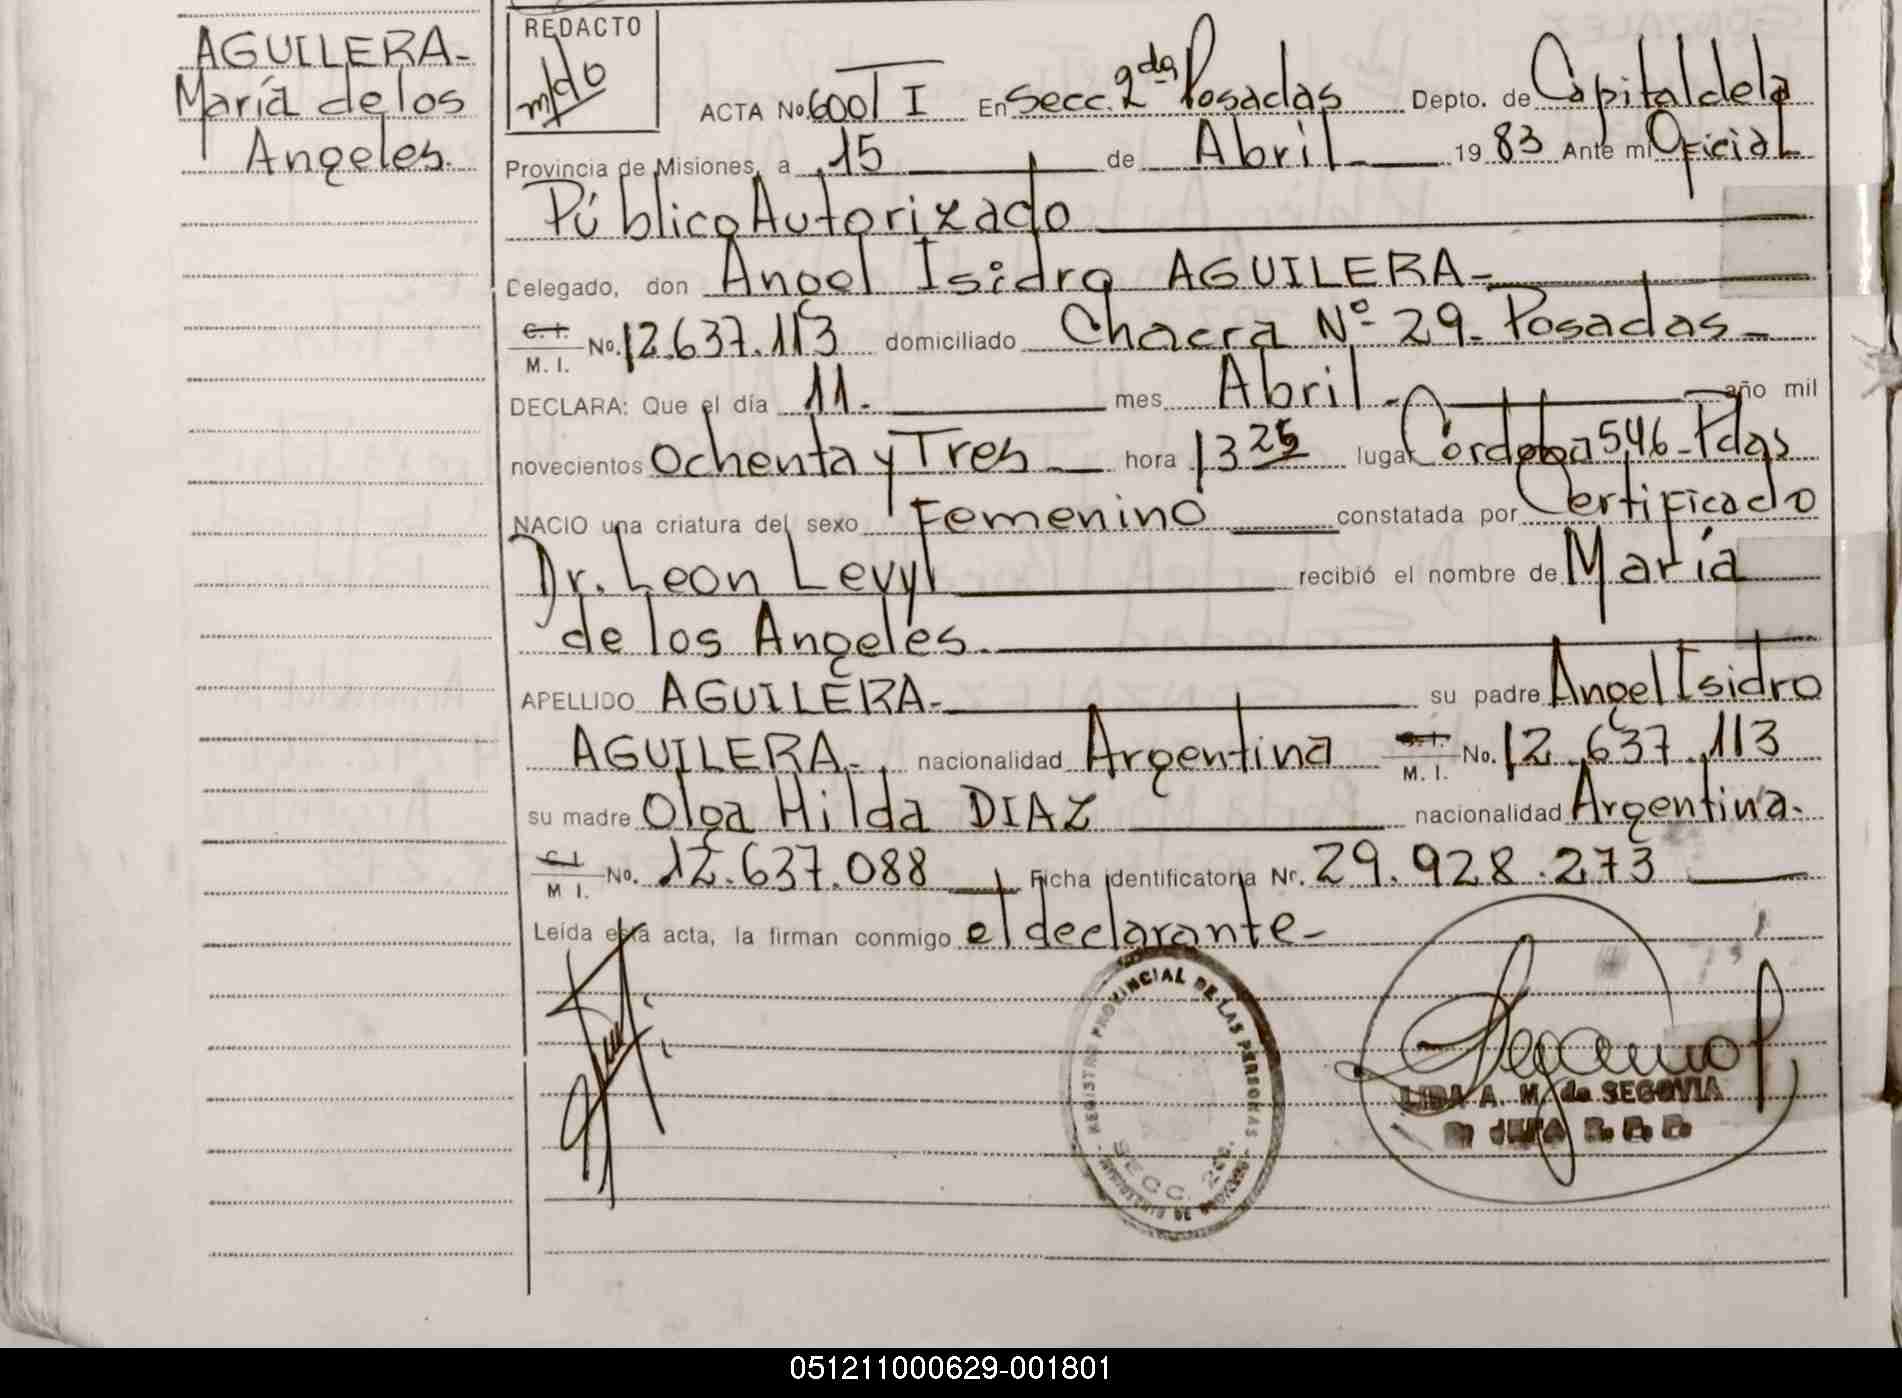 AGUILERA-
María de los
Angeles.
REDACTO
ACTA No. 600 T I En Secc. 2da Posadas Depto. de Capital de la
Provincia de Misiones, a 15 de Abril 1983 Ante mi Oficial
Público Autorizado
Celegado, don Angel Isidro AGUILERA-
C. I.
M. I. No. 12.637.113 domiciliado Chacra Nº 29. Posadas-
DECLARA: Que el día 11. mes Abril. año mil
novecientos Ochenta y Tres hora 13 25 lugar Cordoba 546-Pdas
NACIO una criatura del sexo Femenino constatada por Certificado
Dr. Leon Levyl recibió el nombre de María
de los Angeles.
APELLIDO AGUILERA- su padre Angel Isidro
AGUILERA. nacionalidad Argentina C. I. M. I. No. 12.637.113
su madre Olga Hilda DIAZ nacionalidad Argentina.
C. I.
M I. No. 12.637.088 Ficha identificatoria Nr. 29.928.273
Leída esta acta, la firman conmigo el declarante-
REGISTRO PROVINCIAL DE LAS PERSONAS
SECC. 2da.
LIDA A. M. de SEGOVIA
JEFA R. P. P.
051211000629-001801